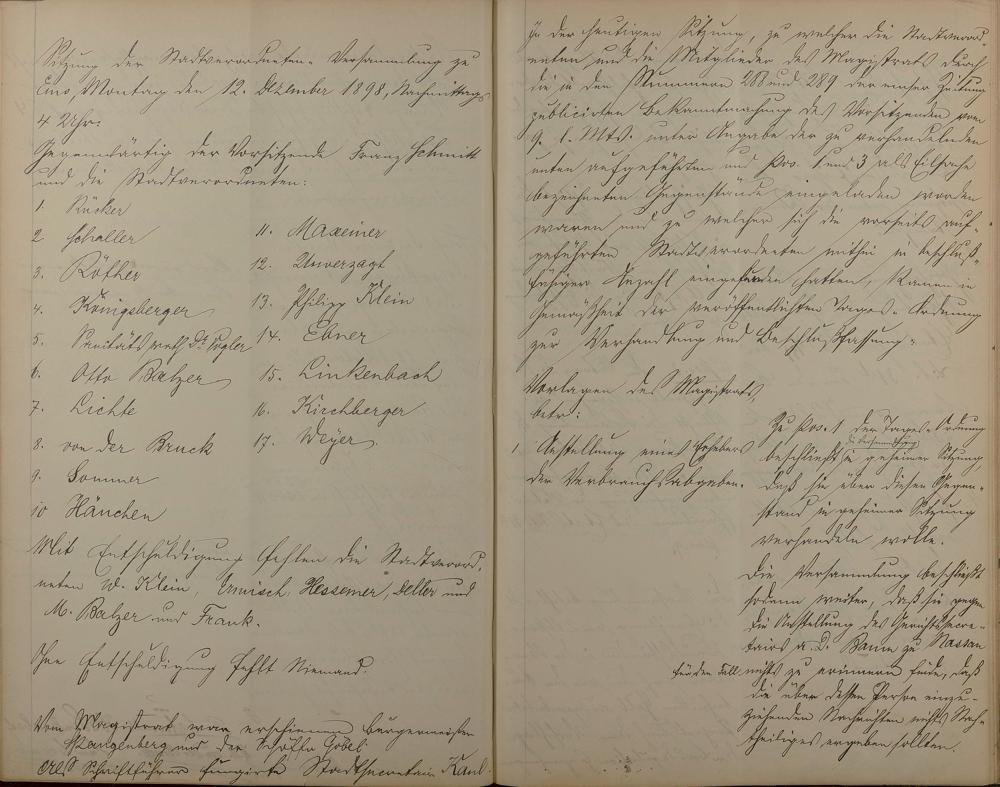 Sitzung der Stadtverordneten-Versammlung zu
Ems, Montag den 12. Dezember 1898, Nachmittags
4 Uhr.
Gegenwärtig der Vorsitzende Franz Schmitt
und die Stadtverordneten:
1. Rücker
2 Schaller
3. Röther
4. Königsberger
5. Sanitätsrath Dr. Vogler
6. Otto Balzer
7. Lichte
8. von der Bruck
9. Sommer
10 Hänchen
11. Maxeiner
12. Unverzagt
13. Philipp Klein
14. Ebner
15. Linkenbach
16. Kirchberger
17. Weyer
Mit Entschuldigung fehlen die Stadtverord-
neten W. Klein, Hessemer, Heller und
M. Balzer und Frank.
Ohne Entschuldigung fehlt Niemand.
Vom Magistrat war erschienen Bürgermeister
Spangenberg und der Schöffe Göbel
Als Schriftführer fungirte Stadtsecretair Kaul.
In der heutigen Sitzung, zu welcher die Stadtverord-
neten und die Mitglieder des Magistrats durch
die in den Nummern 288 und 289 der Emser Zeitung
publicirten Bekanntmachung des Vorsitzenden vom
9. l. Mts. unter Angabe der zu verhandelnden
unten aufgeführten und Pos. 1 und 3 als Eilsache
bezeichneten Gegenstände eingeladen worden
waren und zu welcher sich die vorseits auf-
geführten Stadtverordneten mithin in beschluß-
fähiger Anzahl eingefunden hatten, kamen in
Gemäßheit der veröffentlichten Tages-Ordnung
zur Verhandlung und Beschlußfassung:
Vorlagen des Magistrats,
betr:
1. Anstellung eines Erhebers
der Verbrauchsabgaben.
Zu Pos. 1 der Tages-Ordnung
beschließt die Versammlung in geheimer Sitzung
daß sie über diesen Gegen-
stand in geheimer Sitzung
verhandeln wolle.
Die Versammlung beschließt
sodann weiter, daß sie gegen
die Anstellung des Gerichtssecre-
tairs a. D. zu Nassau
für den Fall nichts zu erinnern finde, daß
die über dessen Person einzu-
ziehenden Nachrichten nichts Nach-
theiliges ergeben sollten.